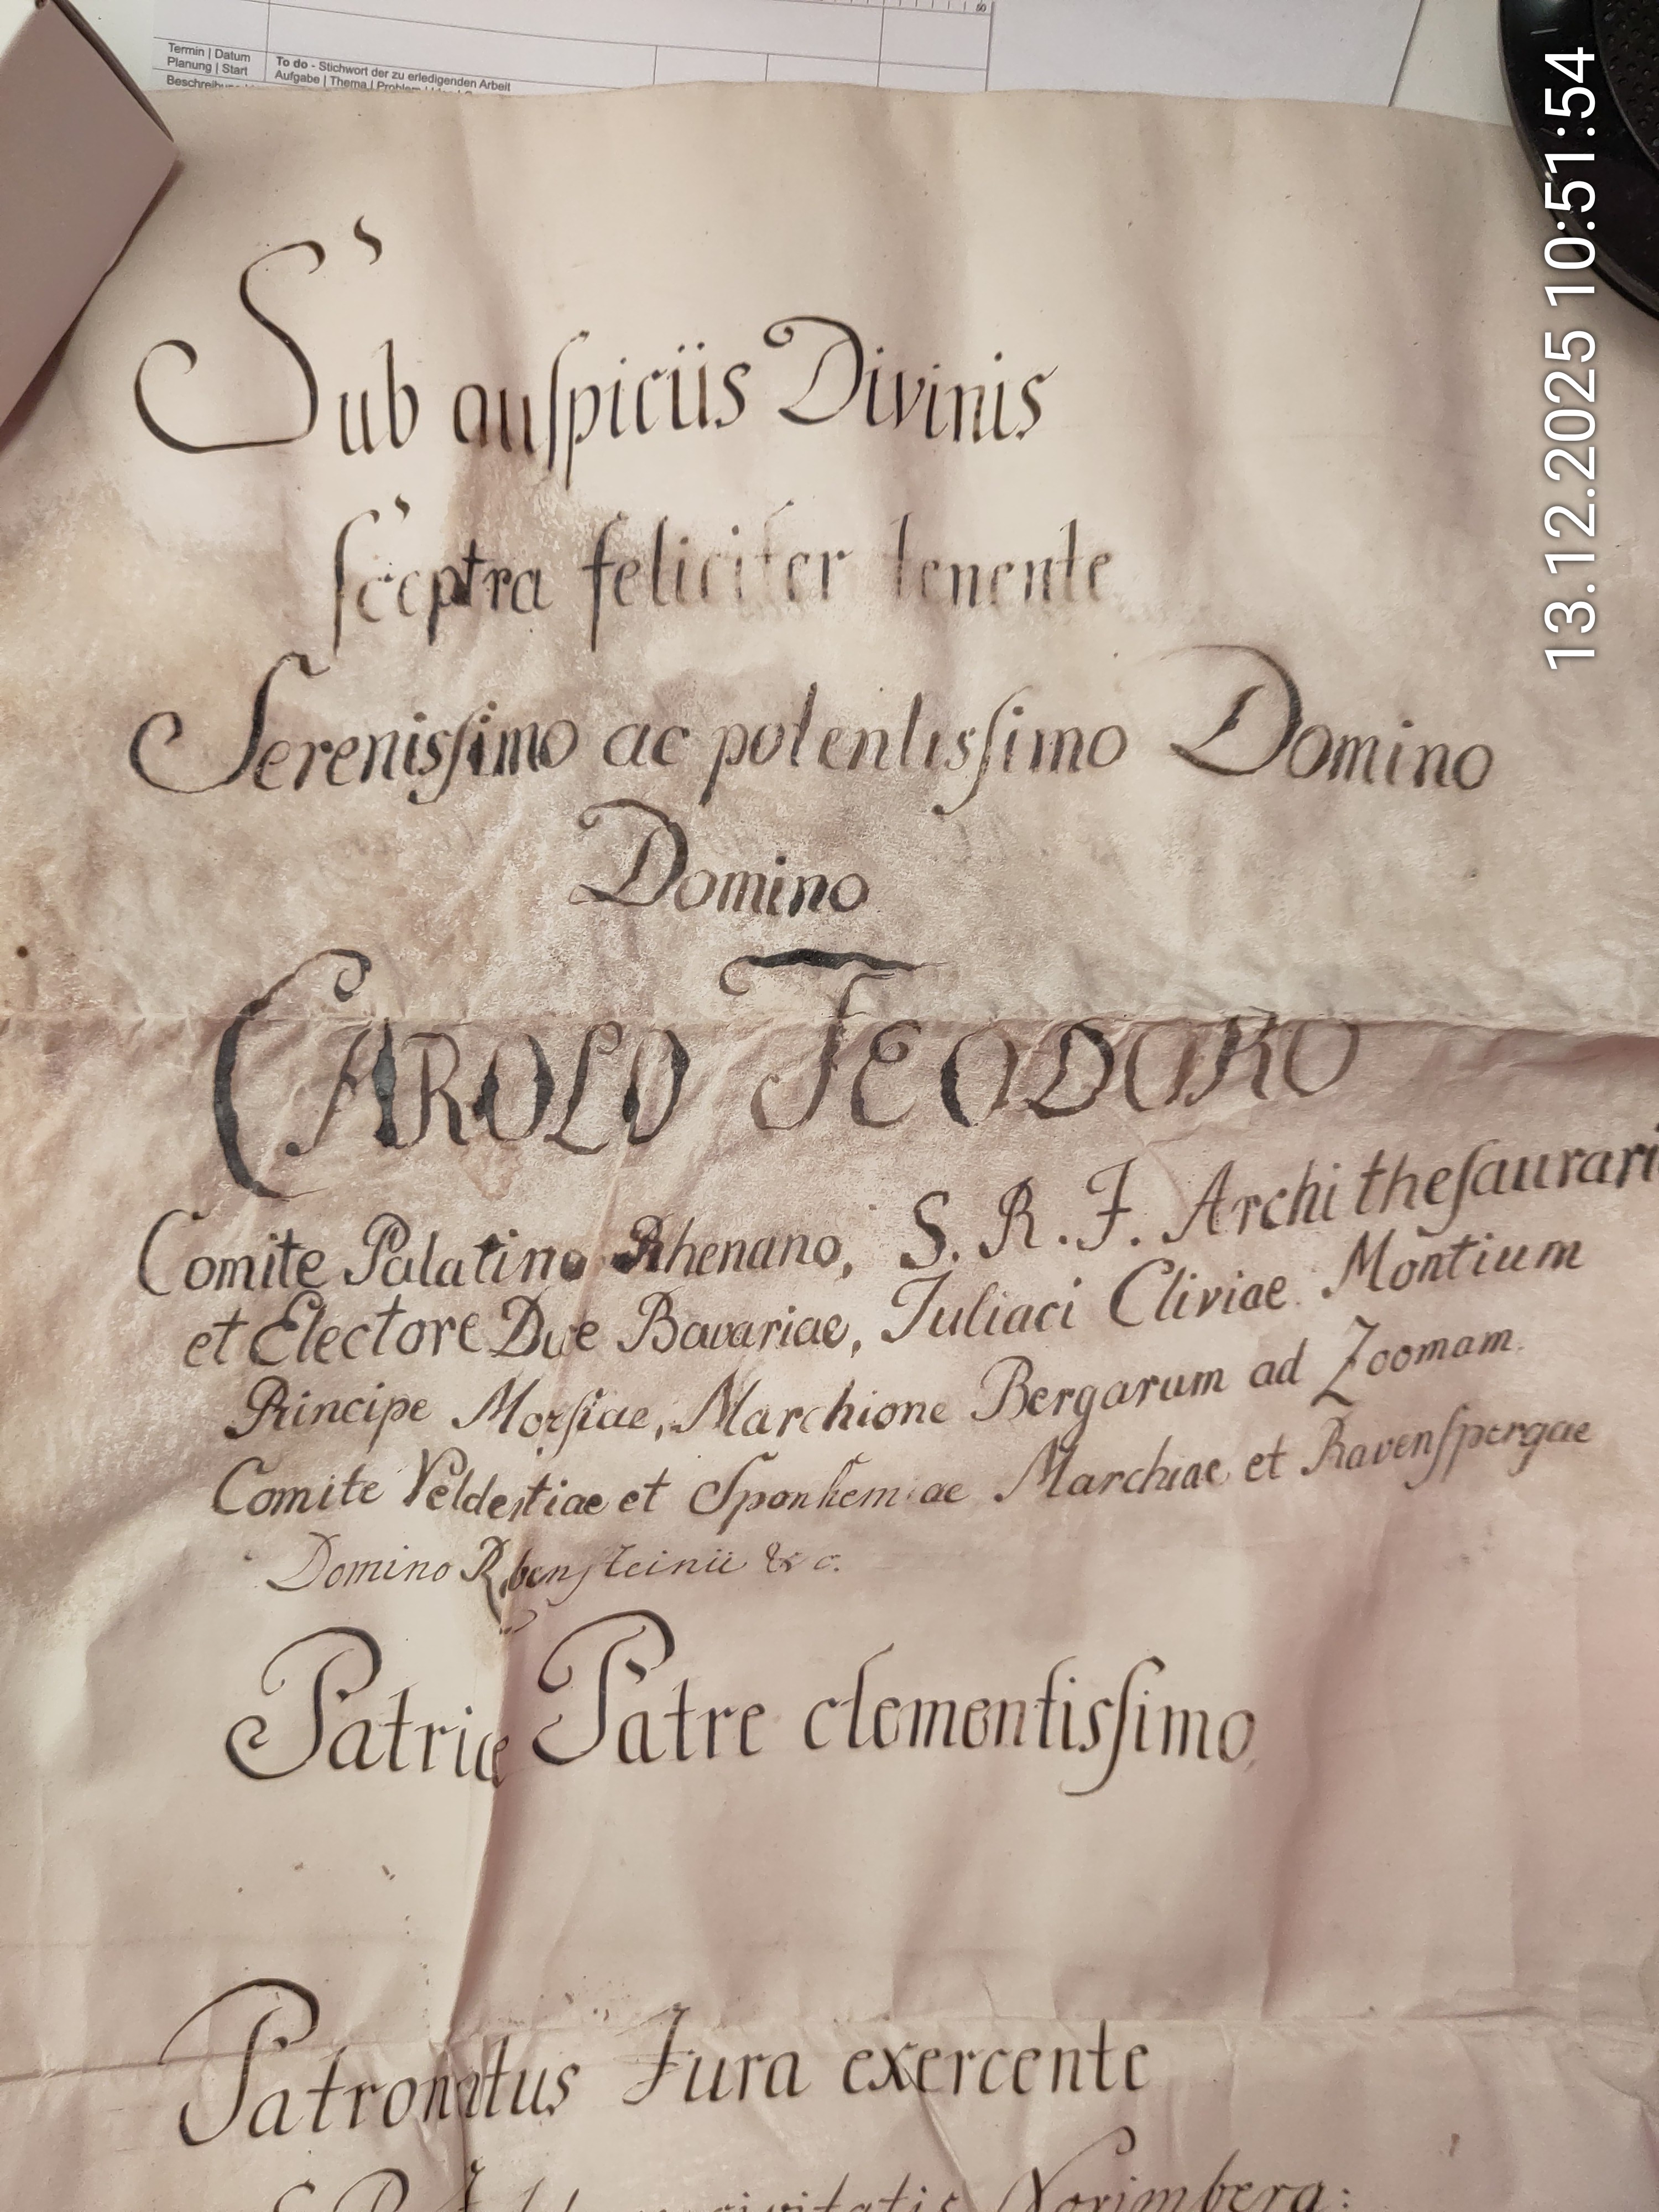 Termin | Datum
Planung | Start
To do - Stichwort der zu erledigenden Arbeit
Aufgabe | Thema | Problem
50
13.12.2025 10:51:54
Sub auſpiciis Divinis
ſceptra feliciter tenente
Sereniſſimo ac potentiſſimo Domino
Domino
CAROLO TEODORO
Comite Palatino Rhenano, S. R. I. Archi theſaurari
et Electore Duce Bavariae, Juliaci Cliviae Montium
Principe Morſiae, Marchione Bergarum ad Zoomam
Comite Veldentiae et Sponhemiae Marchiae et Ravenſpergae
Domino Rabenſteinii & c.
Patriæ Patre clementiſſimo,
Patronatus Jura exercente
civitatis Norimberg: